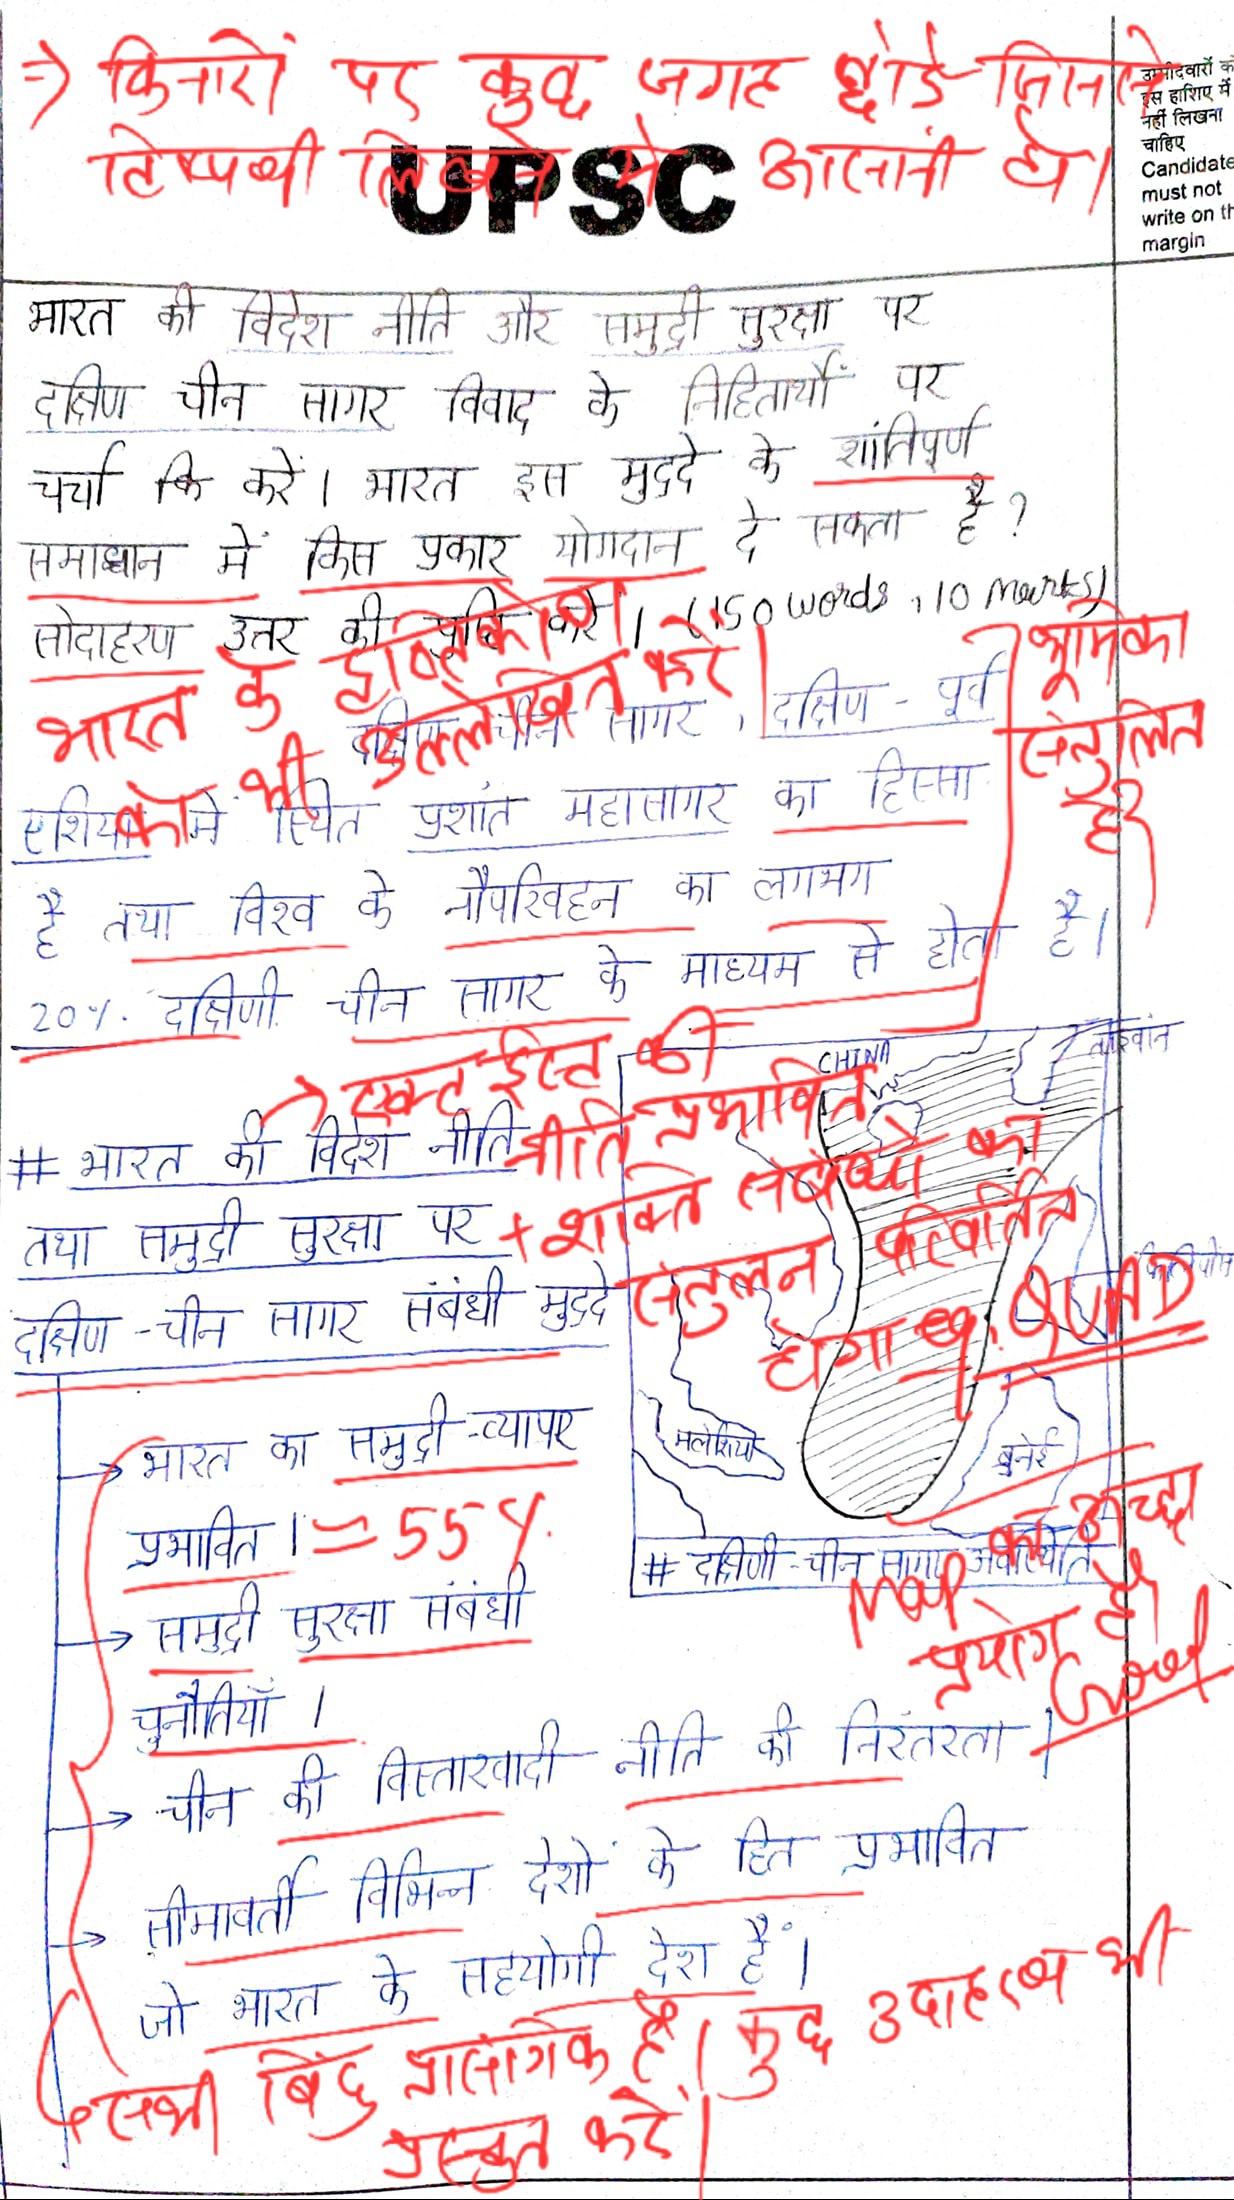 =) किनारों पर कुछ जगह छोडे जिससे
टिप्पणी लिखने मे आसानी हो।
UPSC
उम्मीदवारों को
इस हाशिए में
नहीं लिखना
चाहिए
Candidate
must not
write on th
margin
भारत की विदेश नीति और समुद्री सुरक्षा पर
दक्षिण चीन सागर विवाद के निहितार्थों पर
चर्चा कि करें। भारत इस मुद्दे के शांतिपूर्ण
समाधान में किस प्रकार योगदान दे सकता है?
सोदाहरण उत्तर की पुष्टि करें। (150 words, 10 Marks)
भारत के दृष्टिकोण
को भी उल्लेखित करें
भूमिका
संतुलित
है
दक्षिण चीन सागर, दक्षिण-पूर्व
एशिया में स्थित प्रशांत महासागर का हिस्सा
है तथा विश्व के नौपरिवहन का लगभग
20%. दक्षिणी चीन सागर के माध्यम से होता है।
→ एक्ट ईस्ट की
नीति प्रभावित
+ शक्ति संबंधो का
संतुलन परिवर्तित
होगा QUAD
# भारत की विदेश नीति
तथा समुद्री सुरक्षा पर
दक्षिण-चीन सागर संबंधी मुद्दे
CHINA
ताइवान
मलेशिया
ब्रुनेई
# दक्षिणी-चीन सागर अवस्थिति
Map का अच्छा
प्रयोग है
Good
→ भारत का समुद्री-व्यापार
प्रभावित। = 55%.
→ समुद्री सुरक्षा संबंधी
चुनौतियाँ।
→ चीन की विस्तारवादी नीति की निरंतरता।
→ सीमावर्ती विभिन्न देशों के हित प्रभावित
जो भारत के सहयोगी देश हैं।
सभी बिंदु प्रासंगिक है। कुछ उदाहरण भी
प्रस्तुत करें।